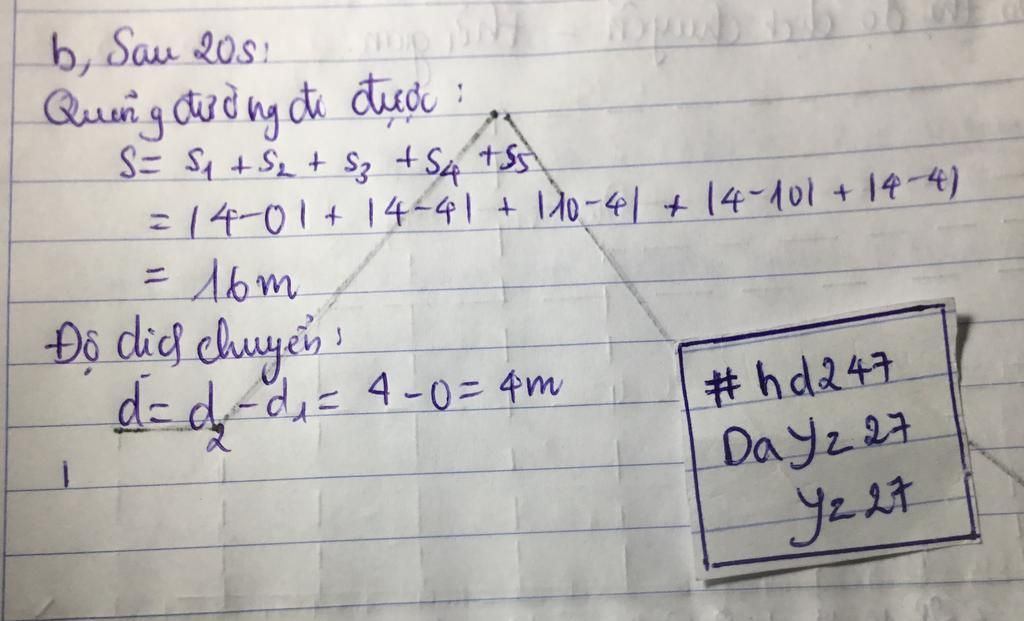 b, Sau 20s:
Quãng đường đi được:
S = S₁ + S₂ + S₃ + S₄ + S₅
= |4-0| + |4-4| + |10-4| + |4-10| + |4-4|
= 16m
Độ dịch chuyển:
d = d₂ - d₁ = 4 - 0 = 4m
# hd247
Da yz 27
yz 27